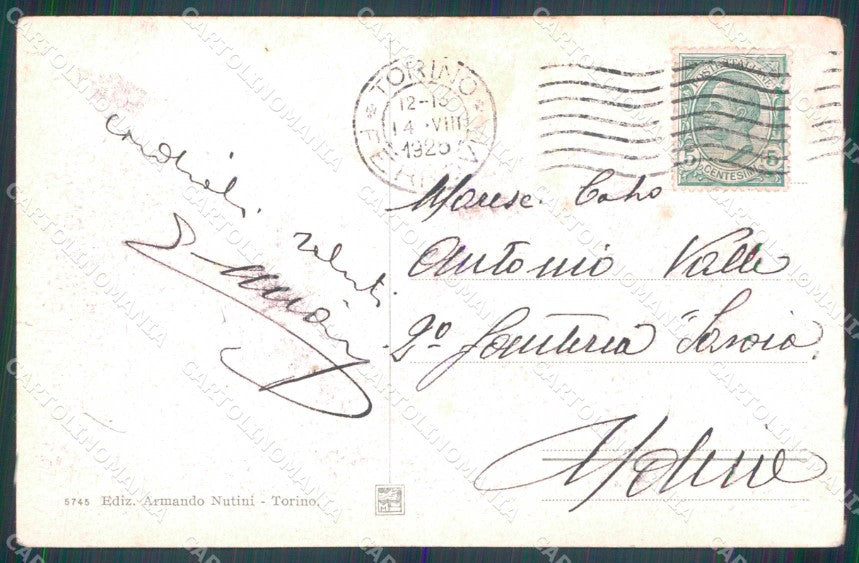 POSTE ITALIANE
TORINO
12-13
14·VIII
1926
FERROVIA
5 5
CENTESIMI
cordiali
saluti
Maresc. Capo
Antonio Valle
2º fanteria "Savoia"
Udine
5745 Ediz. Armando Nutini - Torino.
CARTOLINOMANIA